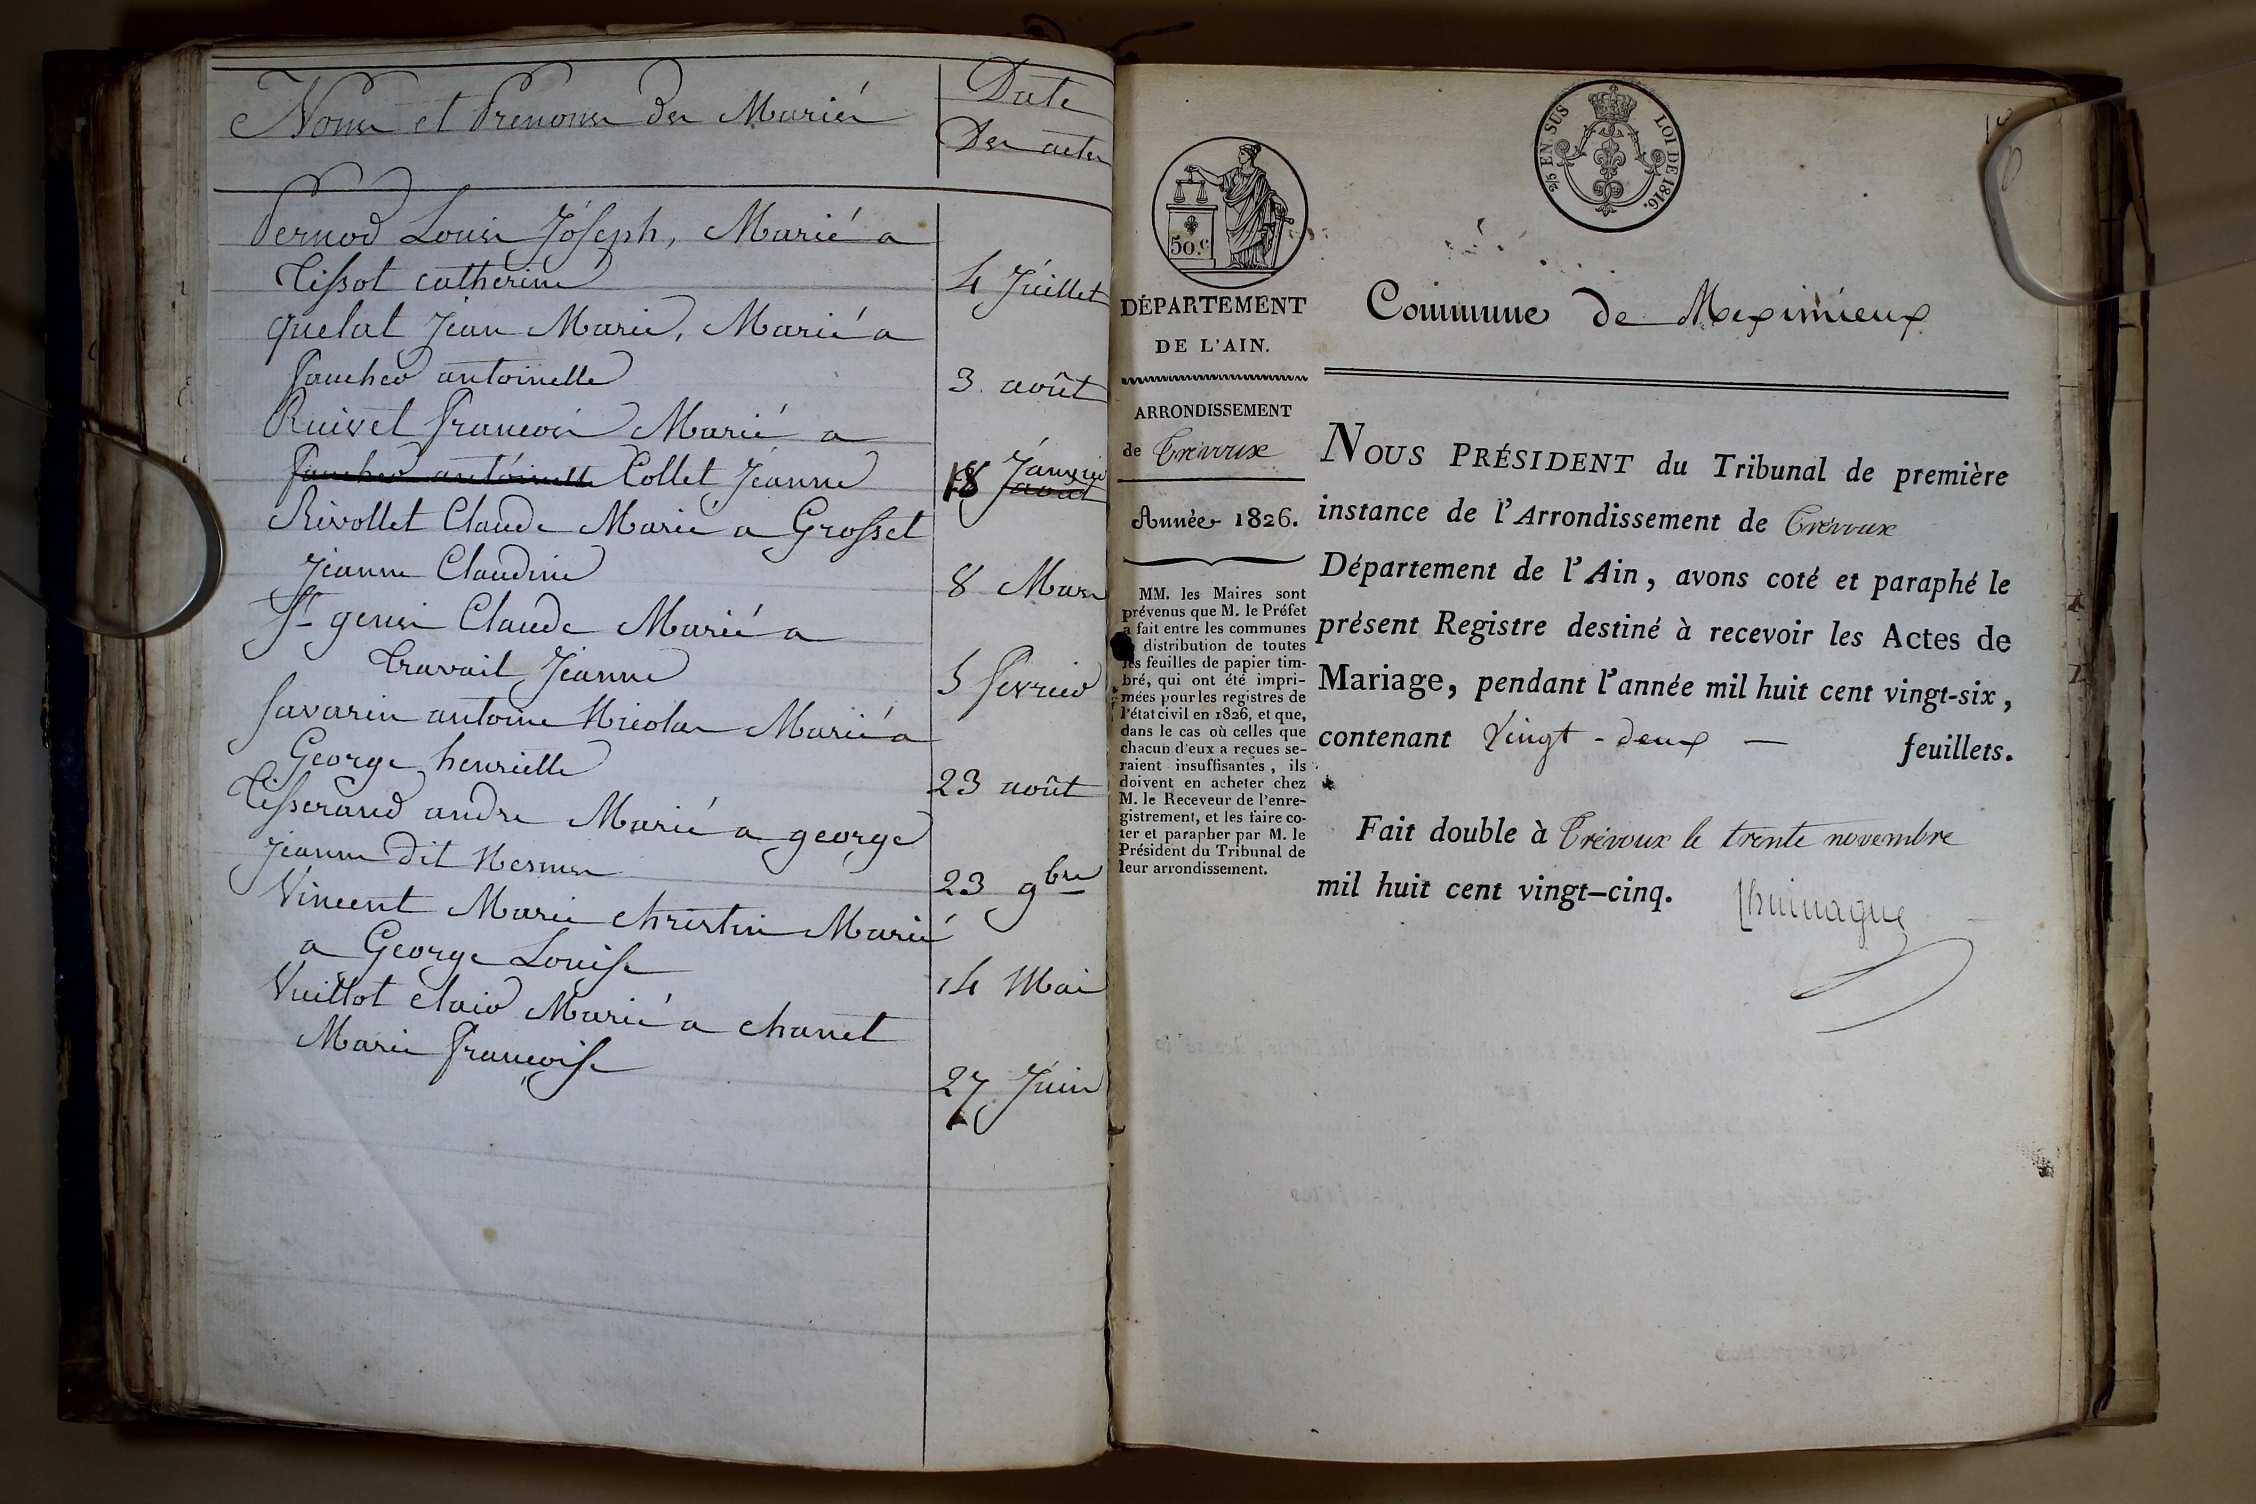 Noms et Prénoms des Mariés
Date
Des actes
Pernod Louis Joseph, Marié a
Tissot catherine
4 Juillet
quelat Jean Marie, Marié a
faucher antoinette
3 août
Ruivet françois Marié a
faucher antoinette Collet Jeanne
18 Janvier
août
Rivollet Claude Marié a Grosset
Jeanne Claudine
8 Mars
St genis Claude Marié a
travail Jeanne
5 fevrier
Savarin antoine Nicolas Marié a
George henriette
23 août
Tisserand andre Marié a george
Jeanne dit Nesmes
23 9bre
Vincent Marie christin Marié
a George Louise
14 Mai
Vuillot clair Marié a chanet
Marie françoise
27 Juin
2/5 EN SUS
LOI DE 1816.
50.c
DÉPARTEMENT
DE L'AIN.
ARRONDISSEMENT
de Trévoux
Année 1826.
MM. les Maires sont
prévenus que M. le Préfet
a fait entre les communes
distribution de toutes
les feuilles de papier tim-
bré, qui ont été impri-
mées pour les registres de
l'état civil en 1826, et que,
dans le cas où celles que
chacun d'eux a reçues se-
raient insuffisantes, ils
doivent en acheter chez
M. le Receveur de l'enre-
gistrement, et les faire co-
ter et parapher par M. le
Président du Tribunal de
leur arrondissement.
Commune de Meximieux
NOUS PRÉSIDENT du Tribunal de première
instance de l'Arrondissement de Trévoux
Département de l'Ain, avons coté et paraphé le
présent Registre destiné à recevoir les Actes de
Mariage, pendant l'année mil huit cent vingt-six,
contenant Vingt-deux — feuillets.
Fait double à Trévoux le trente novembre
mil huit cent vingt-cinq.